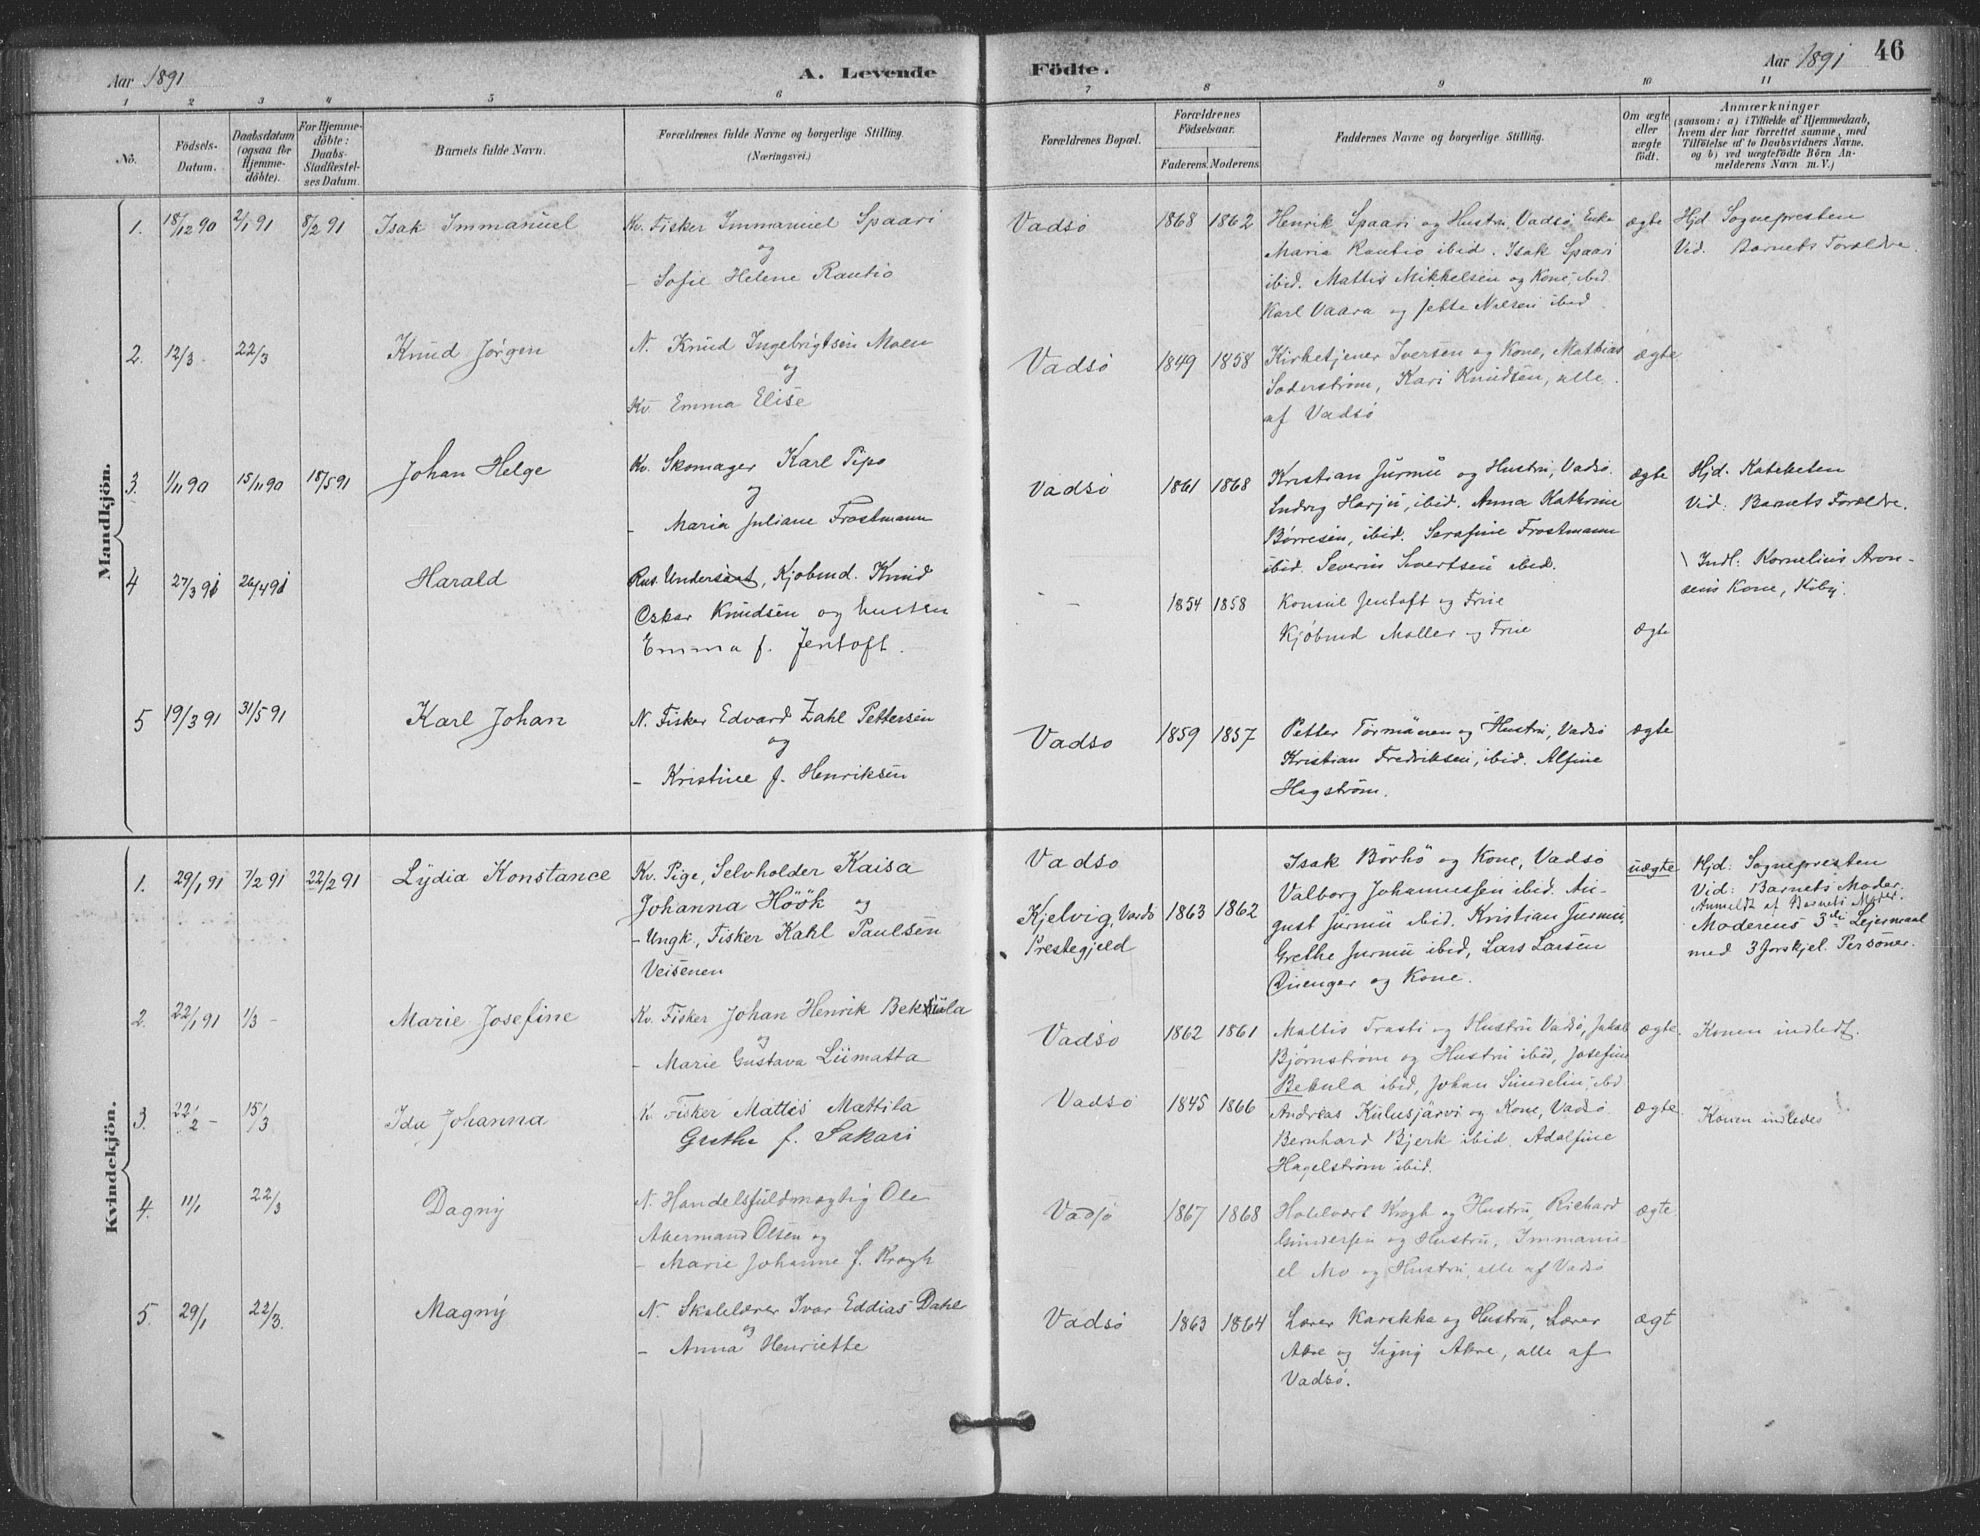 Aar 1891
A. Levende
Födte.
Aar 1891
46
1 2 3 4 5 6 7 8 9 10 11
No.
Födsels-
Datum.
Daabsdatum
(ogsaa for
Hjemme-
döbte).
For Hjemme-
döbte:
Daabs-
Stadfæstel-
ses Datum.
Barnets fulde Navn.
Forældrenes fulde Navne og borgerlige Stilling.
(Næringsvei.)
Forældrenes Bopæl.
Forældrenes
Födselsaar.
Faderens. Moderens.
Faddernes Navne og borgerlige Stilling.
Om ægte
eller
uægte
födt.
Anmærkninger
(saasom: a) i Tilfælde af Hjemmedaab,
hvem der har forrettet samme, med
Tilföielse af to Daabsvidners Navne,
og b) ved uægtefödte Börn An-
melderens Navn m. V.)
Mandkjön.
1. 18/12 90 2/1 91 8/2 91 Isak Immanuel
Kv. Fisker Immanuel Spaari
og
– Sofie Helene Rautio
Vadsö 1868 1862
Henrik Spaari og Hustru, Vadsö, Enke
Maria Rautio ibid. Isak Spaari
ibid. Mattis Mikkelsen og Kone, ibid.
Karl Vaara og Jette Nilsen ibid.
ægte
Hjd Sognepresten
Vid. Barnets Forældre.
2. 12/3. 22/3 Knud Jørgen
N. Knud Ingebrigtsen Moen
og
Kv. Emma Elise
Vadsö 1849 1858
Kirketjener Iversen og Kone, Mathias
Soderstrøm, Kari Knudsen, alle
af Vadsö
ægte
3. 1/11 90 15/11 90 18/5 91 Johan Helge
Kv. Skomager Karl Pipo
og
– Maria Juliane Frostmann
Vadsö 1861 1868
Kristian Jurmu og Hustru, Vadsö.
Ludvig Harju, ibid. Anna Kathrine
Børresen, ibid. Serafine Frostmann
ibid. Severin Sivertsen ibid.
ægte
Hjd. Kateketen
Vid: Barnets Forældre.
4 27/3 91 26/4 91 Harald
Rus. Undersaat, Kjøbmd. Knud
Oskar Knudsen og hustru
Emma f. Jentoft.
– 1854 1858
Konsul Jentoft og Frue
Kjøbmd Moller og Frue
ægte
Indl: Kornelius Aron-
sens Kone, Kiby.
5 19/3 91 31/5 91 Karl Johan
N. Fisker Edvard Zahl Pettersen
og
– Kristine f. Henriksen
Vadsö 1859 1857
Petter Törmänen og Hustru, Vadsö
Kristian Fredriksen, ibid. Alfine
Hagström.
ægte
Kvindekjön.
1. 29/1 91 7/2 91 22/2 91 Lydia Konstance
Kv. Pige, Selvholder Kaisa
Johanna Höök og
– Ungk, Fisker Kahl Paulsen
Veisenen
Vadsö
Kjelvig, Vardö
Prestegjeld
1863 1862
Isak Börhö og Kone, Vadsö
Valborg Johannessen ibid. Au-
gust Jurmu ibid. Kristian Jurmu,
Grethe Jurmu ibid, Lars Larsen
Quenger og Kone.
uægte
Hjd: Sognepresten
Vid: Barnets Moder.
Anmeldt af Barnets Moder.
Moderens 3die Leiermaal
med 3 forskjel. Personer.
2. 22/1 91 1/3 – Marie Josefine
Kv. Fisker Johan Henrik Bekkula
og
– Marie Gustava Liimatta
Vadsö 1862 1861
Mattis Trasti og Hustru Vadsö, Jakob
Bjørnstrøm og Hustru ibid, Josefine
Bekula ibid, Johan Sundelin, ibd
ægte.
Konen indledt.
3 22/2 – 15/3 Ida Johanna
Kv. Fisker Mattis Mattila
Grethe f. Sakari
Vadsö 1845 1866
Andreas Kulusjärvi og Kone, Vadsö.
Bernhard Bjerk ibid. Adolfine
Hagelstrøm ibid.
ægte.
Konen indledes
4. 11/1 22/3 Dagny
N. Handelsfuldmægtig Ole
Akermand Olsen og
– Marie Johanne f. Krogh
Vadsö 1867 1868
Hotelvært Krogh og Hustru, Richard
Gundersen og Hustru, Immanu-
el Mo og Hustru, alle af Vadsö
ægte
5. 29/1 22/3. Magny
N. Skolelærer Ivar Eddias Dahl
og
– Anna Henriette
Vadsö 1863 1864
Lærer Karikka og Hustru, Lærer
Akre og Signy Akre, alle af
Vadsö.
ægt